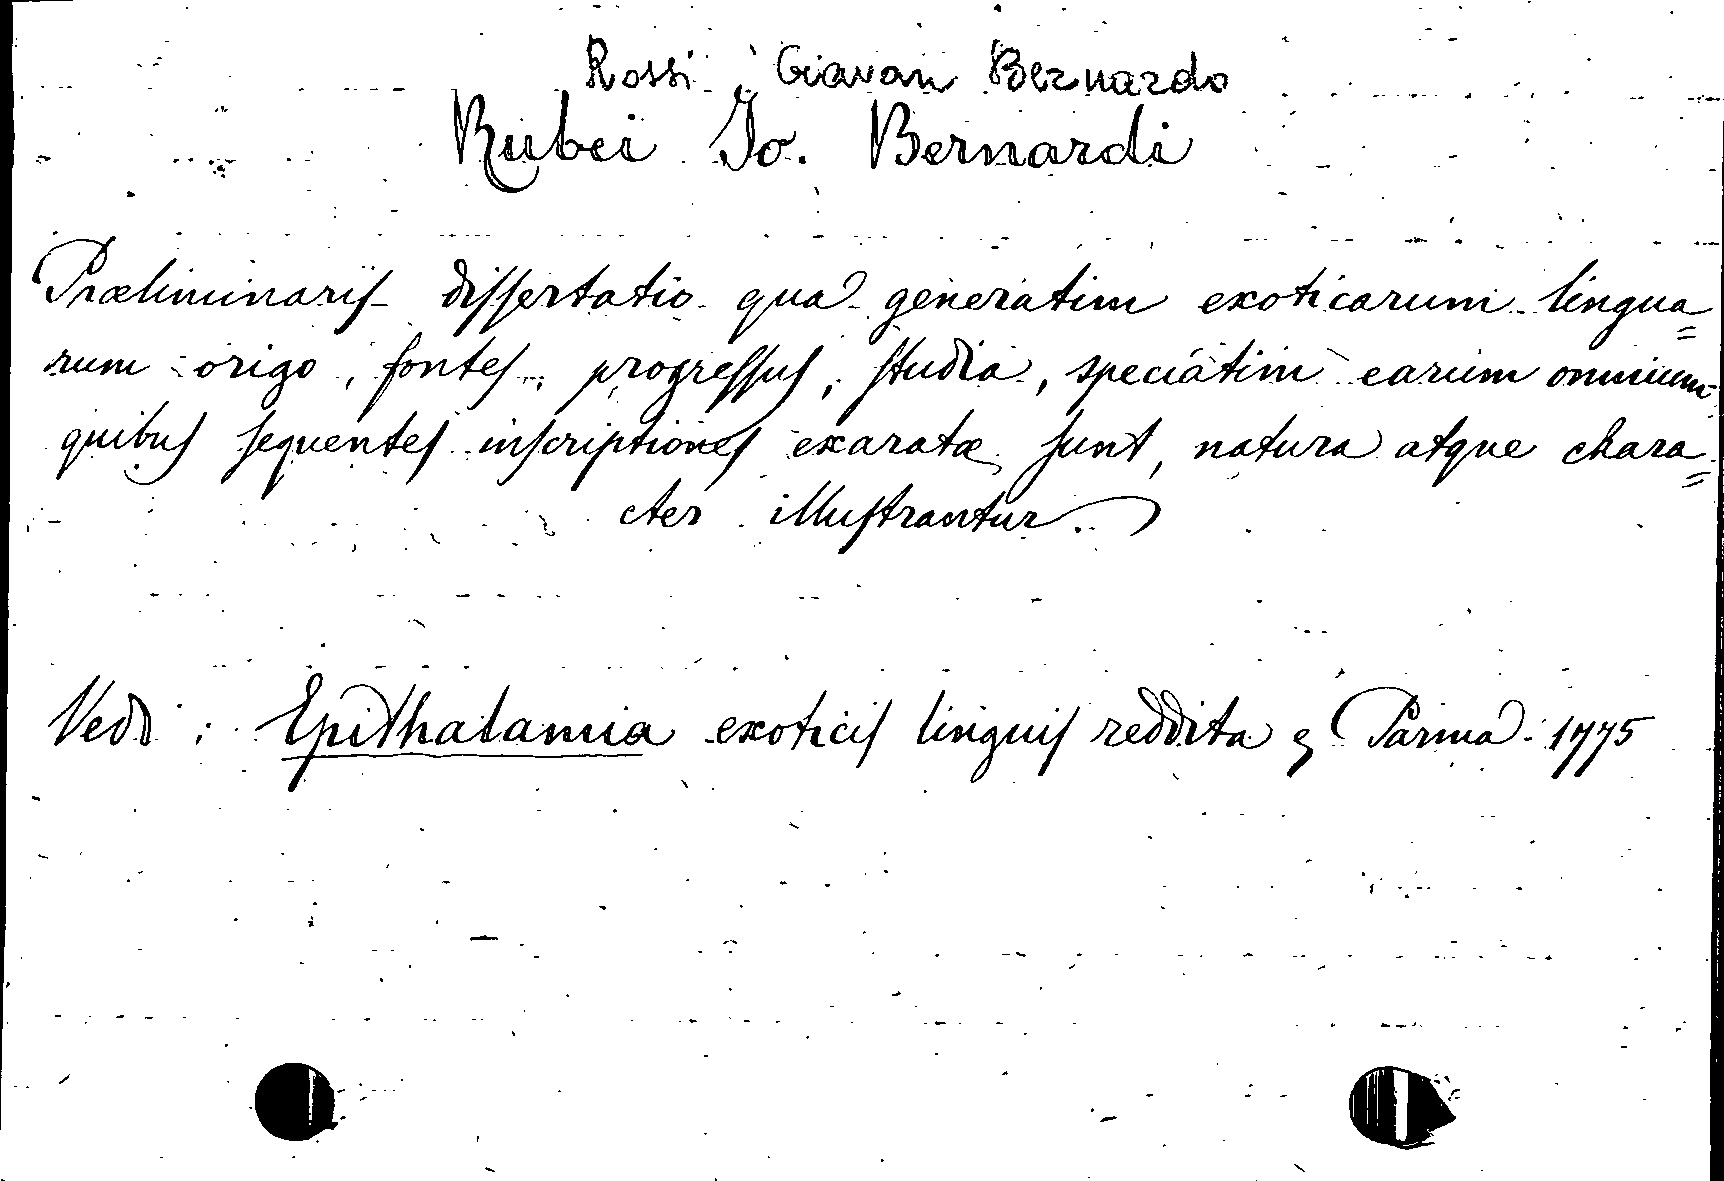 Rossi, Giovan Bernardo
Rubei Jo. Bernardi
Præliminaris dissertatio qua generatim exoticarum lingua=
rum origo, fontes, progressus, studia, speciatim earum omnium
quibus sequentes inscriptiones exaratæ sunt, natura atque chara=
cter illustrantur.
Vedi: Epithalamia exoticis linguis reddita & Parma. 1775